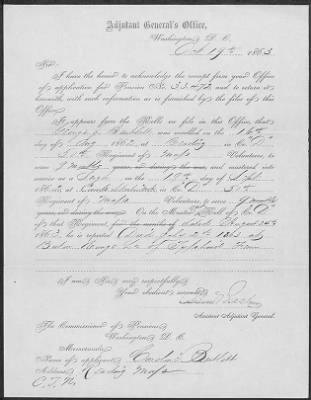 Adjutant General's Office,
Washington, D. C.
Oct 19th 1863
Sir:
I have the honor to acknowledge the receipt from your Office
of application for Pension No. 33.472 and to return it
herewith, with such information as is furnished by the files of this
Office.
It appears from the Rolls on file in this Office, that
George was enrolled on the 16th
day of Aug 1862, at Reading in Co. "D"
Regiment of Mass Volunteers, to serve
9 months years, or during the war, and mustered into
service as a Sergt on the 18th day of Sept
1862, at in Co. "D"
Regiment of Mass Volunteers, to serve 9 months
years, or during the war. On the Muster Roll of Co. "D"
of that Regiment, for the months of dated August
1863, he is reported Died July 1863 at
Baton Rouge La of Typhoid Fever
I am, Sir, very respectfully,
Your obedient servant,
Assistant Adjutant General.
The Commissioner of Pensions,
Washington, D. C.
Memoranda:
Name of applicant, Caroline
Address, Reading Mass